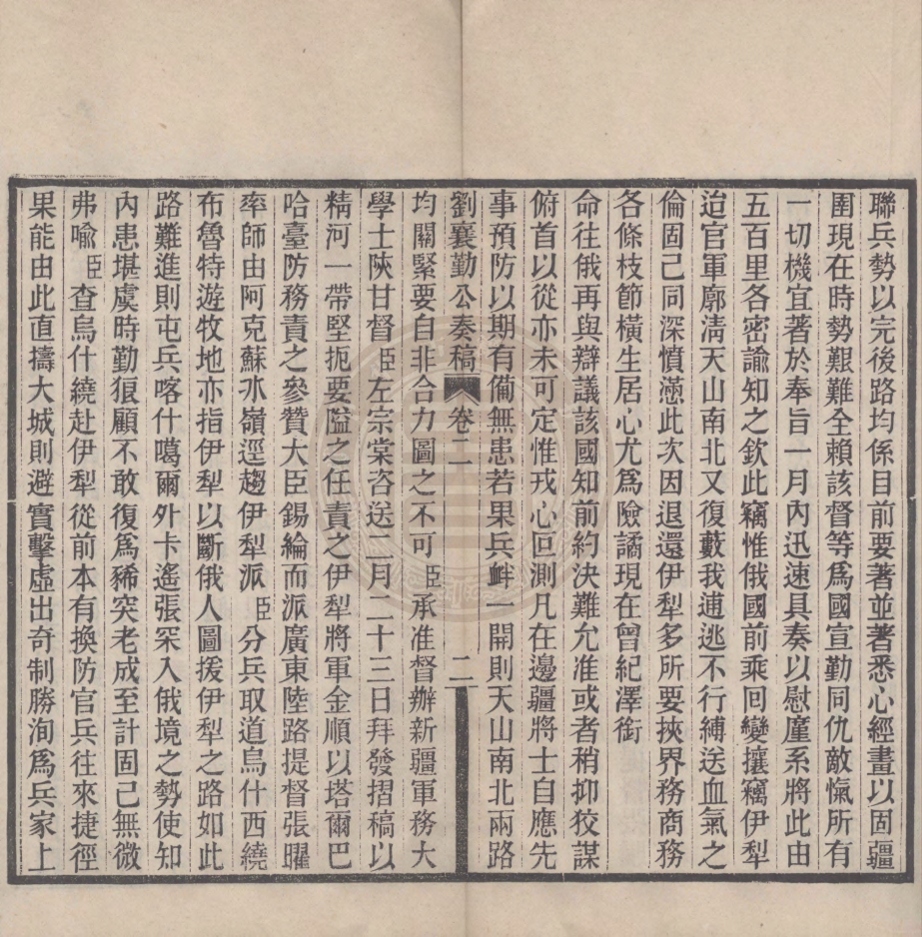 聯兵勢以完後路均係目前要著並著悉心經畫以固疆
圉現在時勢艱難全賴該督等爲國宣勤同仇敵愾所有
一切機宜著於奉旨一月內迅速具奏以慰廑系將此由
五百里各密諭知之欽此竊惟俄國前乘回變攘竊伊犁
迨官軍廓清天山南北又復藪我逋逃不行縛送血氣之
倫固已同深憤懣此次因退還伊犁多所要挾界務商務
各條枝節橫生居心尤爲險譎現在曾紀澤銜
命往俄再與辯議該國知前約決難允准或者稍抑狡謀
俯首以從亦未可定惟戎心叵測凡在邊疆將士自應先
事預防以期有備無患若果兵衅一開則天山南北兩路
劉襄勤公奏稿 卷二 二
均關緊要自非合力圖之不可臣承准督辦新疆軍務大
學士陝甘督臣左宗棠咨送二月二十三日拜發摺稿以
精河一帶堅扼要隘之任責之伊犁將軍金順以塔爾巴
哈臺防務責之參贊大臣錫綸而派廣東陸路提督張曜
率師由阿克蘇冰嶺逕趨伊犁派臣分兵取道烏什西繞
布魯特遊牧地亦指伊犁以斷俄人圖援伊犁之路如此
路難進則屯兵喀什噶爾外卡遙張罙入俄境之勢使知
內患堪虞時勤狼顧不敢復爲豨突老成至計固已無微
弗喻臣查烏什繞赴伊犁從前本有換防官兵往來捷徑
果能由此直擣大城則避實擊虛出奇制勝洵爲兵家上